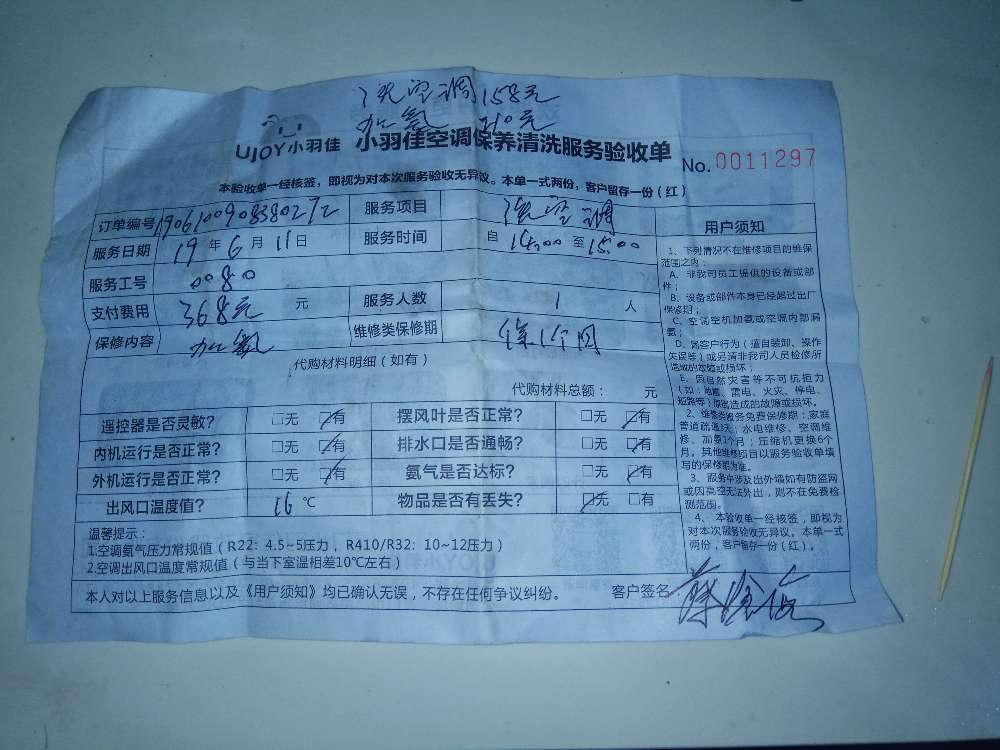 洗空调158元
加氨 210元
UJOY小羽佳 小羽佳空调保养清洗服务验收单 No. 0011297
本验收单一经核签，即视为对本次服务验收无异议。本单一式两份，客户留存一份（红）
订单编号 1906100908380272 服务项目 洗空调
服务日期 19 年 6 月 11 日 服务时间 自 14:00 至 15:00
服务工号 0080
支付费用 368元 元 服务人数 1 人
保修内容 加氨 维修类保修期 保1个月
代购材料明细（如有）
代购材料总额： 元
遥控器是否灵敏? □无 ☑有 摆风叶是否正常? □无 ☑有
内机运行是否正常? □无 ☑有 排水口是否通畅? □无 ☑有
外机运行是否正常? □无 ☑有 氨气是否达标? □无 ☑有
出风口温度值? 16 ℃ 物品是否有丢失? ☑无 □有
温馨提示：
1.空调氨气压力常规值（R22：4.5~5压力，R410/R32：10~12压力）
2.空调出风口温度常规值（与当下室温相差10℃左右）
本人对以上服务信息以及《用户须知》均已确认无误，不存在任何争议纠纷。 客户签名
用户须知
1、下列情况不在维修项目的维保
范围之内：
A、非我司员工提供的设备或部
件；
B、设备或部件本身已经超过出厂
保修期；
C、空调空机加氨或空调内部漏
氨；
D、属客户行为（擅自装卸、操作
失误等）或另请非我司人员检修所
造成的故障或损坏；
E、因自然灾害等不可抗拒力
（如：地震、雷电、火灾、停电、
短路等）原因造成的故障或损坏。
2、维修类服务免费保修期：家庭
管道疏通3天；水电维修、空调维
修、加氨1个月；压缩机更换6个
月。其他维修项目以服务验收单填
写的保修期为准。
3、服务中涉及出外墙如有防盗网
或因高空无法外出，则不在免费检
测范围。
4、本验收单一经核签，即视为
对本次服务验收无异议。本单一式
两份，客户留存一份（红）。